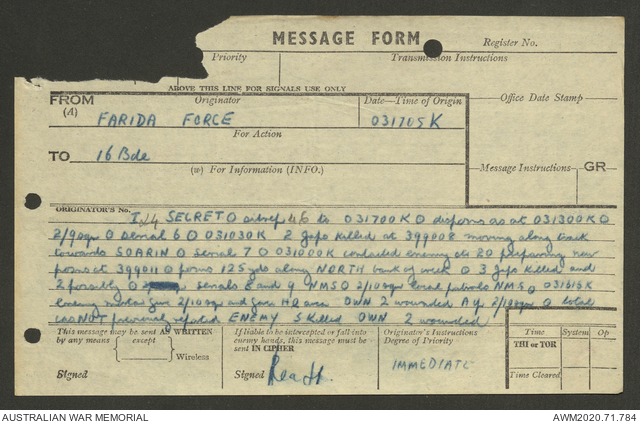 MESSAGE FORM
Register No.
Priority
Transmission Instructions
ABOVE THIS LINE FOR SIGNALS USE ONLY
FROM
(A)
Originator
Date—Time of Origin
Office Date Stamp
FARIDA FORCE
031705K
For Action
TO
16 Bde
(W) For Information (INFO.)
Message Instructions
GR
ORIGINATOR'S No.
I24 SECRET O sitrep 46 to 031700K O disposns as at 031300K O
2/9 O serial 6 O 031030K 2 Japs killed at 399008 moving along track
towards SOARIN O serial 7 O 031000K contacted enemy 20 preparing new
posns at 399011 O posns 125 yds along NORTH bank of creek O 3 Japs killed and
2 possibly O serials 8 and 9 NMS O 2/10 local patrols NMS O 031615K
enemy 2/10 and area OWN 2 wounded O total
cas NOT previously reported ENEMY 5 killed OWN 2 wounded
This message may be sent AS WRITTEN
by any means except
Wireless
Signed
If liable to be intercepted or fall into
enemy hands, this message must be
sent IN CIPHER
Signed
Originator's Instructions
Degree of Priority
IMMEDIATE
Time
System
Op
THI or TOR
Time Cleared
AUSTRALIAN WAR MEMORIAL
AWM2020.71.784